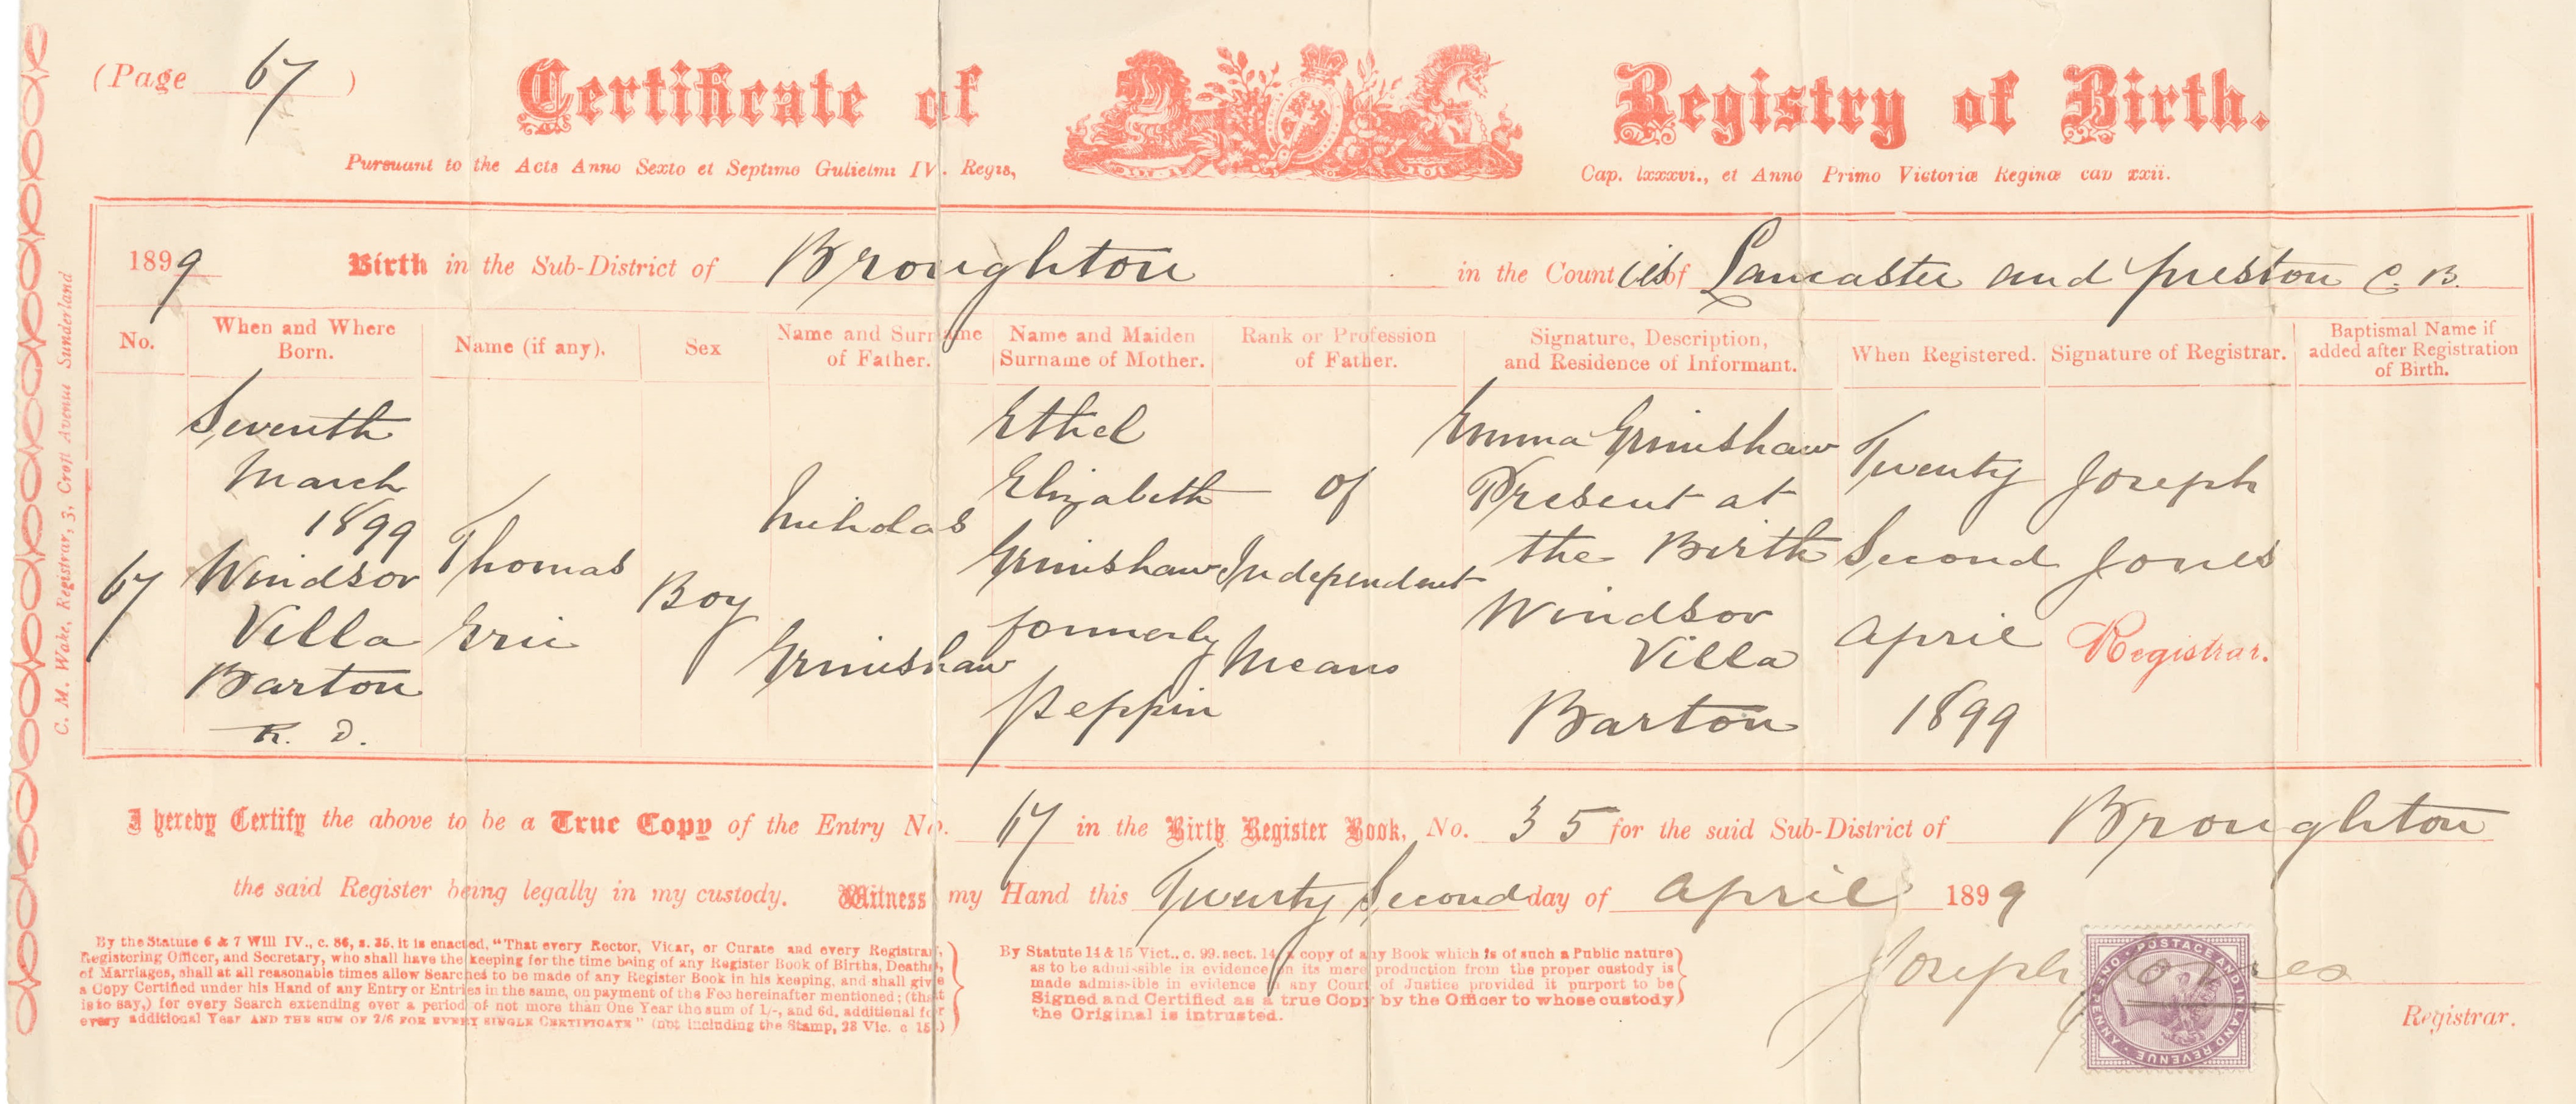 (Page 67)
Certificate of Registry of Birth.
Pursuant to the Acts Anno Sexto et Septimo Gulielmi IV. Regis, Cap. lxxxvi., et Anno Primo Victoriæ Reginæ cap xxii.
1899 Birth in the Sub-District of Broughton in the Counties of Lancaster and Preston C. B.
No.
When and Where
Born.
Name (if any).
Sex
Name and Surname
of Father.
Name and Maiden
Surname of Mother.
Rank or Profession
of Father.
Signature, Description,
and Residence of Informant.
When Registered.
Signature of Registrar.
Baptismal Name if
added after Registration
of Birth.
67
Seventh
March
1899
Windsor
Villa
Barton
R. D.
Thomas
Eric
Boy
Nicholas
Grimshaw
Ethel
Elizabeth
Grimshaw
formerly
Peppin
of
Independent
Means
Emma Grimshaw
Present at
the Birth
Windsor
Villa
Barton
Twenty
Second
April
1899
Joseph
Jones
Registrar.
I hereby Certify the above to be a True Copy of the Entry No. 67 in the Birth Register Book, No. 35 for the said Sub-District of Broughton
the said Register being legally in my custody. Witness my Hand this Twenty Second day of April 1899
Joseph Jones
Registrar.
By the Statute 6 & 7 Will IV., c. 86, s. 35, it is enacted, "That every Rector, Vicar, or Curate and every Registrar,
Registering Officer, and Secretary, who shall have the keeping for the time being of any Register Book of Births, Deaths,
of Marriages, shall at all reasonable times allow Searches to be made of any Register Book in his keeping, and shall give
a Copy Certified under his Hand of any Entry or Entries in the same, on payment of the Fee hereinafter mentioned; (that
is to say,) for every Search extending over a period of not more than One Year the sum of 1/-, and 6d. additional for
every additional Year AND THE SUM OF 2/6 FOR EVERY SINGLE CERTIFICATE" (not including the Stamp, 28 Vic. c 15.)
By Statute 14 & 15 Vict., c. 99. sect. 14, a copy of any Book which is of such a Public nature
as to be admissible in evidence on its mere production from the proper custody is
made admissible in evidence in any Court of Justice provided it purport to be
Signed and Certified as a true Copy by the Officer to whose custody
the Original is intrusted.
POSTAGE AND INLAND REVENUE
ONE PENNY
C. M. Wake, Registrar, 3, Croft Avenue Sunderland